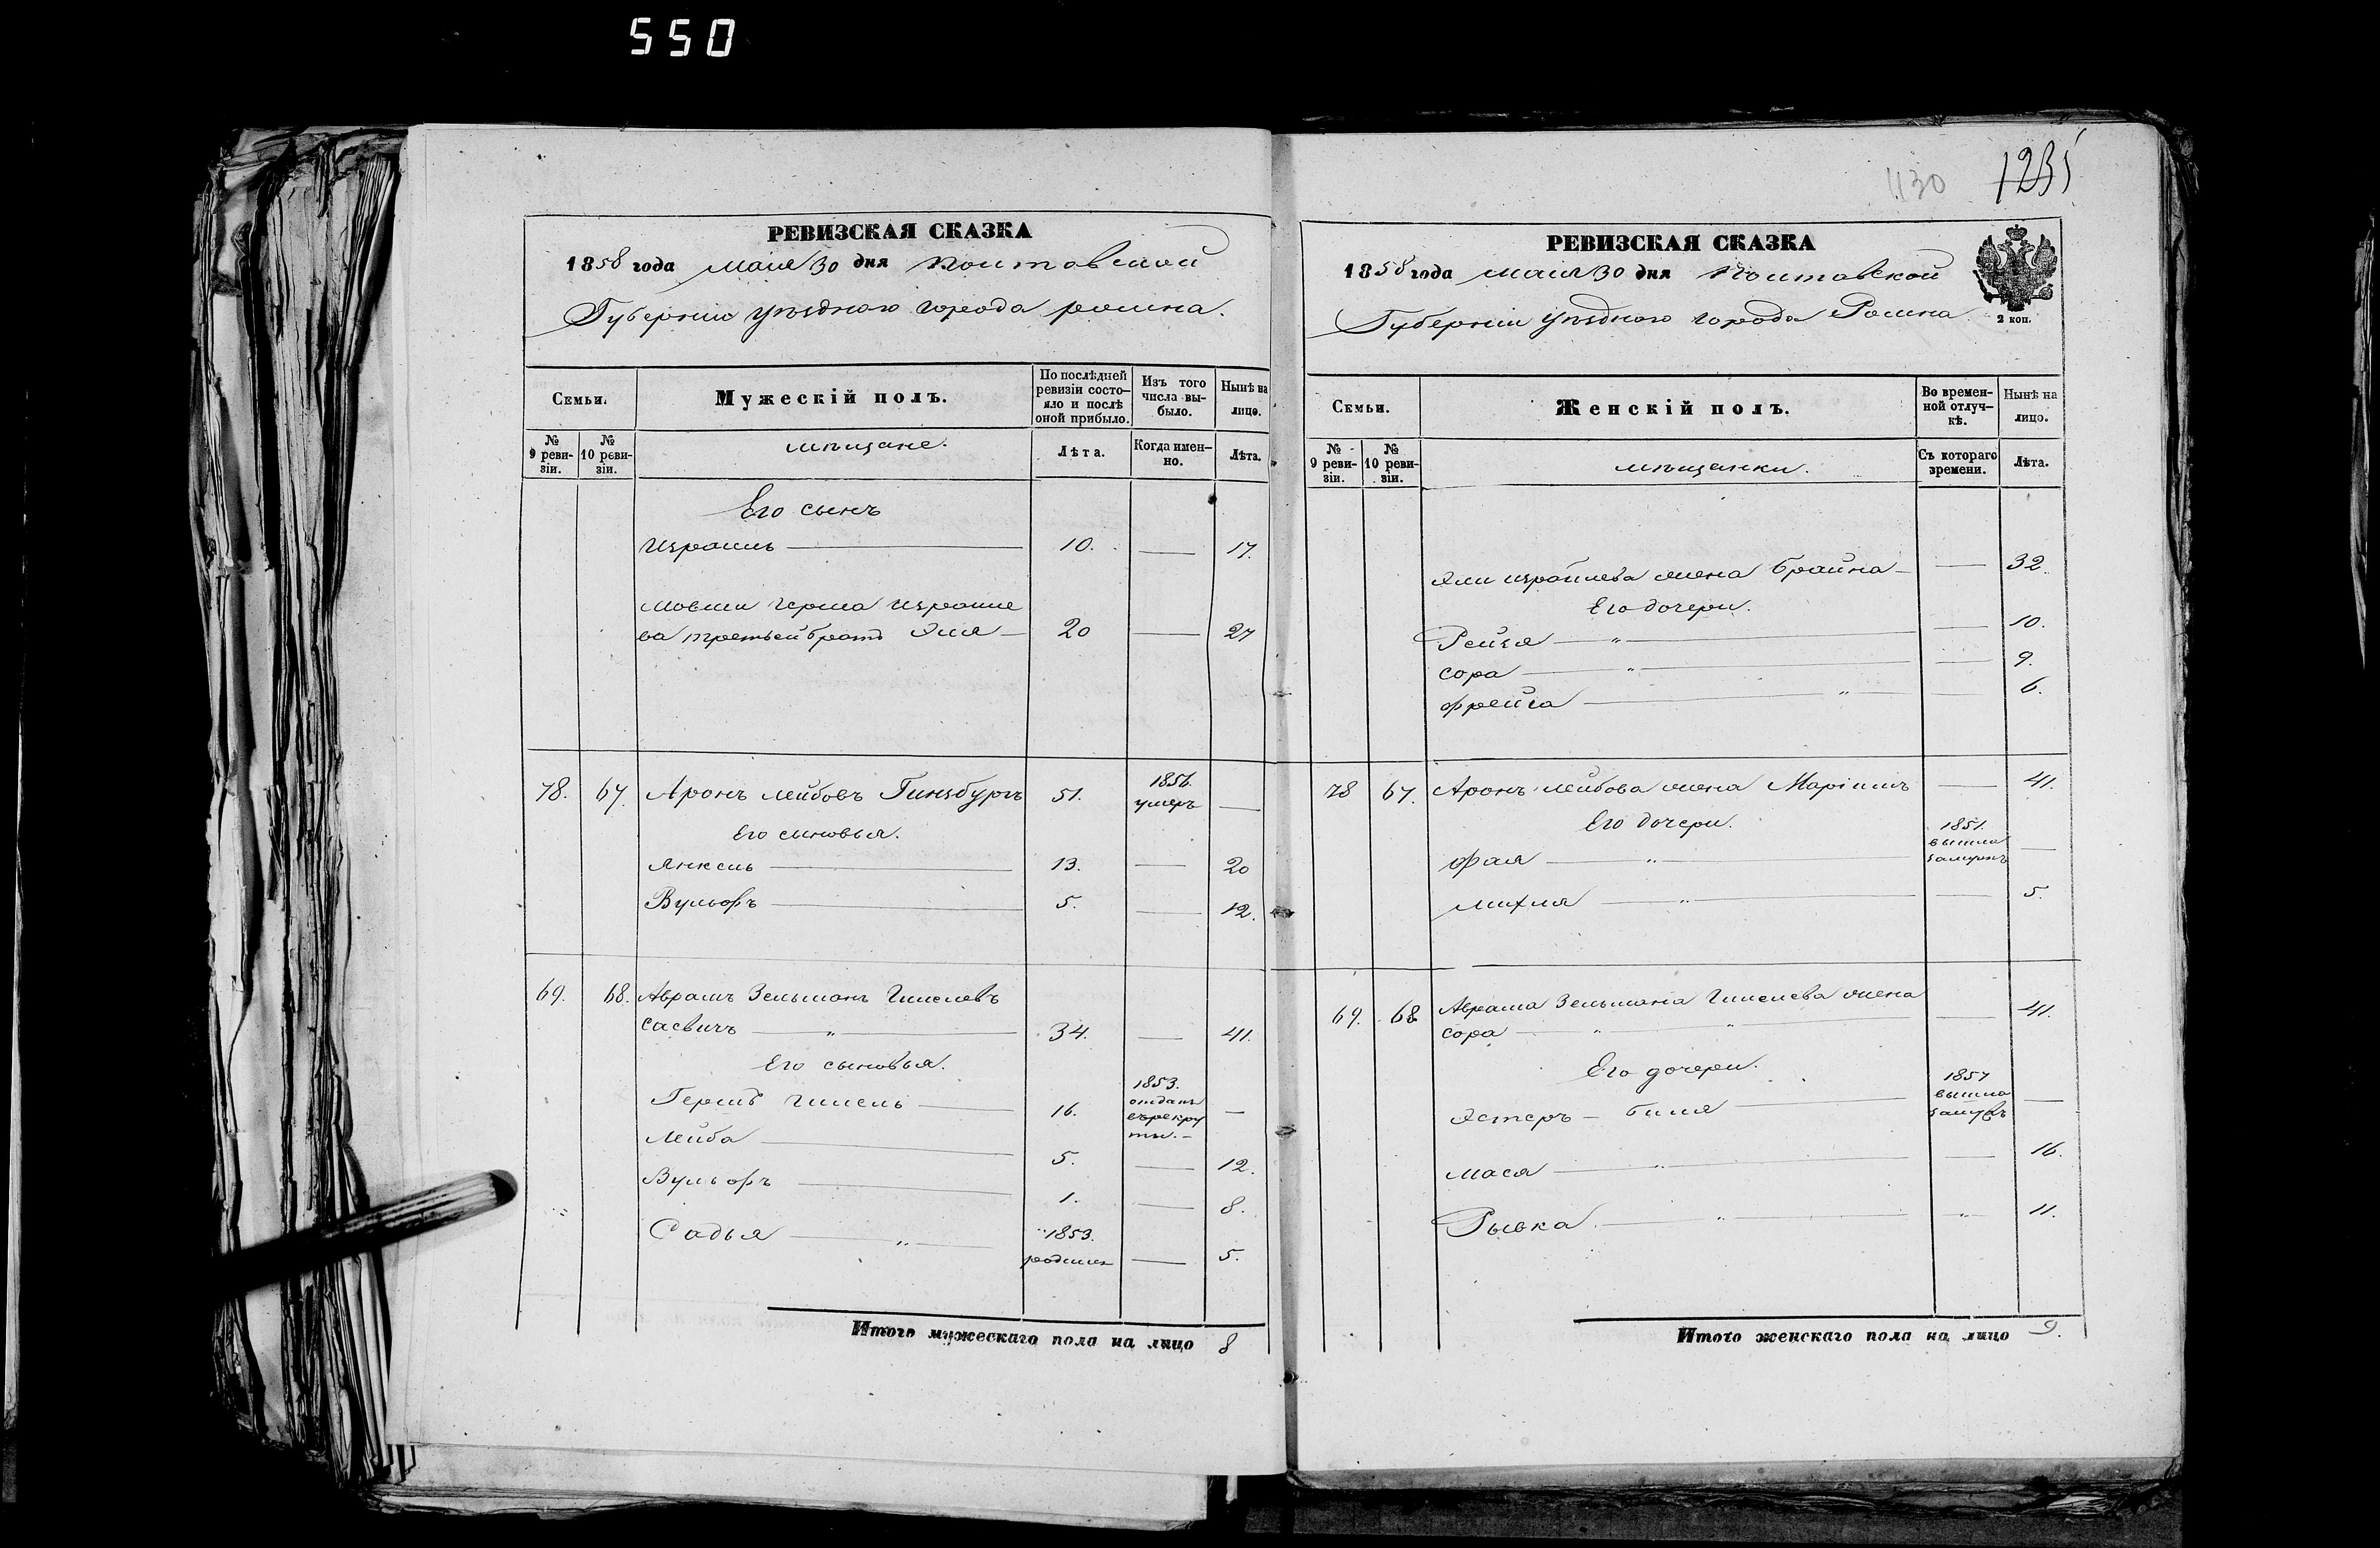 550
РЕВИЗСКАЯ СКАЗКА
1858 года Маія 30 дня Полтавской
Губерніи уѣзднаго города ромна.
Семьи.
Мужескій полъ.
По послѣдней ревизіи состо-
яло и послѣ оной прибыло.
Изъ того числа вы-
было.
Нынѣ на лицо.
№ 9 реви-
зіи.
№ 10 реви-
зіи.
мѣщане.
Лѣта.
Когда имен-
но.
Лѣта.
Его сынъ
Израиль 10. — 17.
Мовши Герша Израиле
ва третьей братъ Эля — 20 — 27
78. 67. Аронъ Лейбовъ Гинзбургъ 51. 1856. умеръ —
Его сыновья.
Янкель — 13. — 20
Вульфъ — 5. — 12.
69. 68. Абрамъ Зельманъ Гителевъ
Сасвичъ — „ — 34. — 41.
Его сыновья.
Гершъ Гитель — 16. 1853. отданъ въ рекру
ты. — —
Лейба — 5. — 12.
Вульфъ — 1. — 8.
Садья — „ — 1853. родился — 5.
Итого мужескаго пола на лицо 8
1130 1235
РЕВИЗСКАЯ СКАЗКА
1858 года маія 30 дня Полтавской
Губерніи Уѣзднаго города Ромна
2 коп.
Семьи.
Женскій полъ.
Во времен-
ной отлуч-
кѣ.
Нынѣ на лицо.
№ 9 реви-
зіи.
№ 10 реви-
зіи.
мѣщанки.
Съ котораго времени.
Лѣта.
Эли Израилева жена Брайна — — 32.
Его дочери.
Рейзя — „ — — 10.
Сора — „ — — 9.
Фрейга — „ — — 6.
78 67. Аронъ Лейбова жена — 41.
Его дочери.
Фая — „ — 1851. вышла замужъ —
Михля — „ — — 5.
69. 68 Абрама Зельмана Гителева жена
Сора — „ „ — — 41.
Его дочери.
Эстеръ — Биля — 1857 вышла замужъ —
Мася — „ — — 16.
Рывка — „ — „ 11.
Итого женскаго пола на лицо 9.